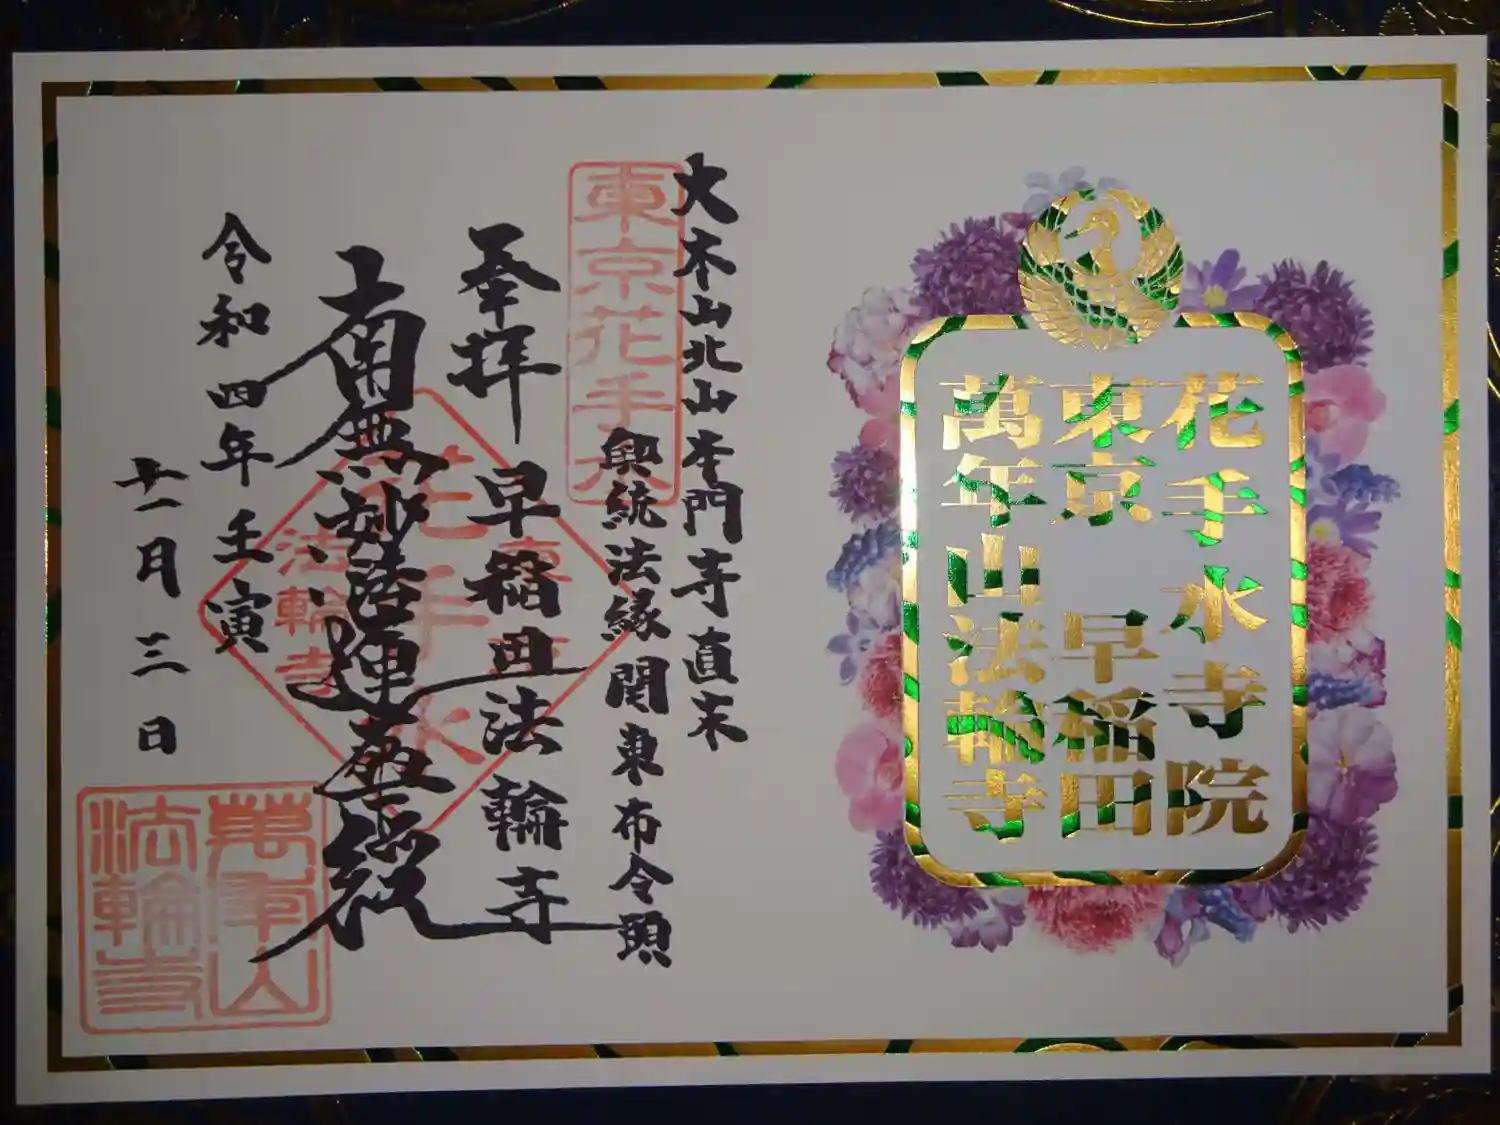 花手水寺院
東京 早稲田
萬年山法輪寺
大本山北山本門寺直末
興統法縁関東布令頭
東京花手水
奉拝 早稲田法輪寺
南無妙法蓮華経
花手水
東京
法輪寺
令和四年壬寅
十一月三日
萬年山
法輪寺